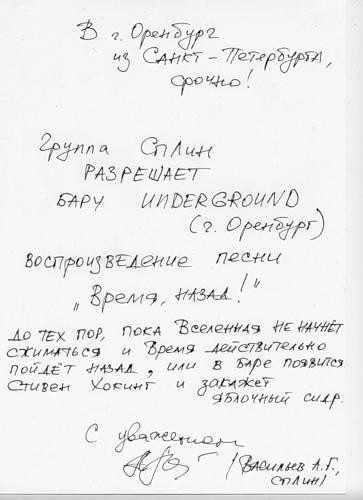 В г. Оренбург
из Санкт-Петербурга,
срочно!
Группа Сплин
РАЗРЕШАЕТ
БАРУ UNDERGROUND
(г. Оренбург)
воспроизведение песни
„Время, назад!"
до тех пор, пока Вселенная не начнёт
сжиматься и Время действительно
пойдёт назад, или в баре появится
Стивен Хокинг и закажет
яблочный сидр.
С уважением
(Васильев А.Г.,
СПЛИН)